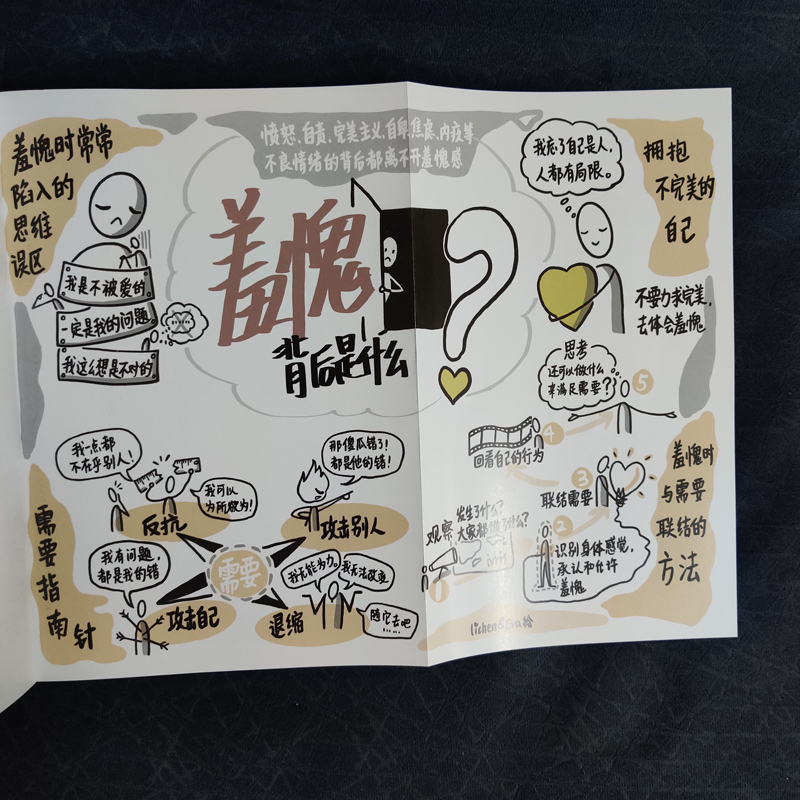 愤怒、自责、完美主义、自卑、焦虑、内疚等
不良情绪的背后都离不开羞愧感
羞愧
背后是什么
羞愧时常常
陷入的
思维
误区
我是不被爱的
一定是我的问题
我这么想是不对的
我忘了自己是人，
人都有局限。
拥抱
不完美的
自己
不要力求完美，
去体会羞愧
需要指南针
我一点都
不在乎别人！
我可以
为所欲为！
反抗
那傻瓜错了！
都是他的错！
攻击别人
需要
我有问题，
都是我的错
攻击自己
我无能为力。
我无法改变
随它去吧
……
退缩
羞愧时
与需要
联结的
方法
1
观察
发生了什么？
大家都做了什么？
2
识别身体感觉，
承认和允许
羞愧
3
联结需要
4
回看自己的行为
5
思考
还可以做什么
来满足需要？